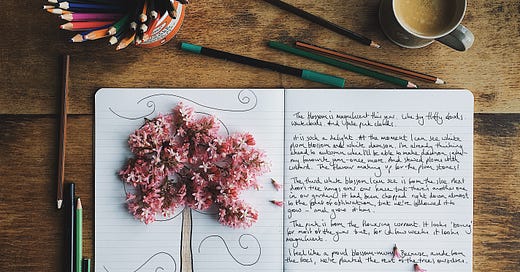 The blossom is magnificent this year. Like big fluffy clouds.
White clouds. And white pink clouds.
It is such a delight. At the moment I can see white
plum blossom and white damson. I'm already thinking
ahead to autumn when I'll be able to make damson jam -
my favourite jam - once more. And stewed plums with
custard. The flavour making up for the plum stones!
The third white blossom I can see is from the sloe. Next
door's tree hangs over our house but there's another one
in our garden. It had been chopped right down almost
to the point of obliteration, but we've allowed it to
grow - and grow it has.
The pink is from the flowering currant. It looks
for most of the year but, for a few weeks it looks
magnificent.
I feel like a proud blossom-mum. Because aside from
the sloes, we've planted the rest of the trees ourselves